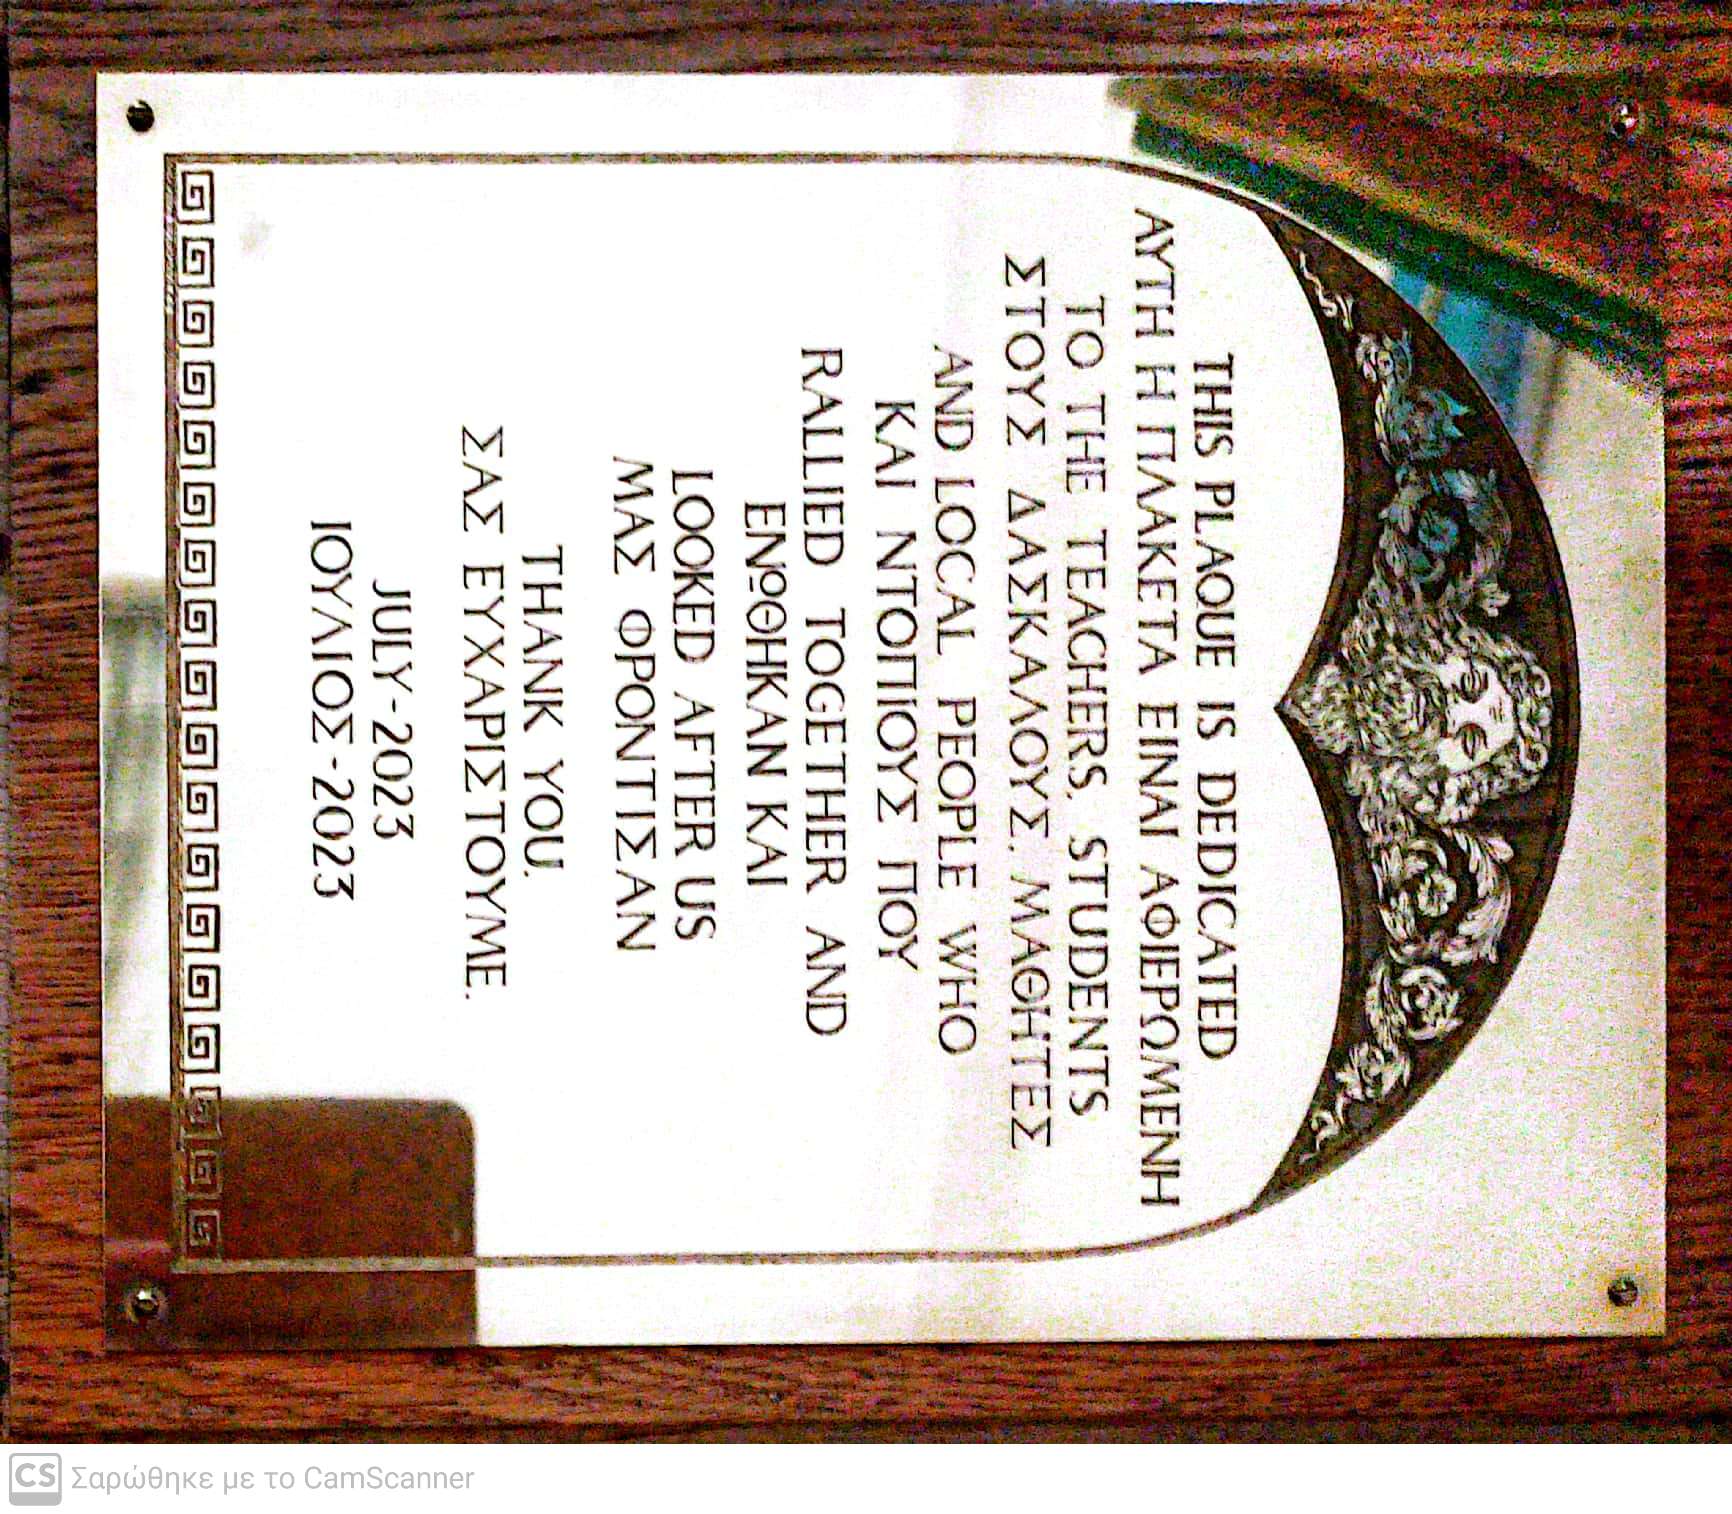 THIS PLAQUE IS DEDICATED
ΑΥΤΗ Η ΠΛΑΚΕΤΑ ΕΙΝΑΙ ΑΦΙΕΡΩΜΕΝΗ
TO THE TEACHERS, STUDENTS
ΣΤΟΥΣ ΔΑΣΚΑΛΟΥΣ, ΜΑΘΗΤΕΣ
AND LOCAL PEOPLE WHO
ΚΑΙ ΝΤΟΠΙΟΥΣ ΠΟΥ
RALLIED TOGETHER AND
ΕΝΩΘΗΚΑΝ ΚΑΙ
LOOKED AFTER US
ΜΑΣ ΦΡΟΝΤΙΣΑΝ
THANK YOU.
ΣΑΣ ΕΥΧΑΡΙΣΤΟΥΜΕ.
JULY-2023
ΙΟΥΛΙΟΣ-2023
CS Σαρώθηκε με το CamScanner